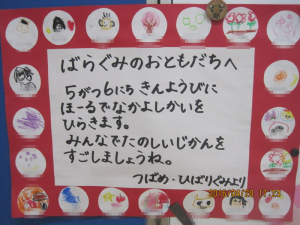 ばらぐみのおともだちへ
5がつ6にち きんようびに
ほーるでなかよしかいを
ひらきます。
みんなでたのしいじかんを
すごしましょうね。
つばめ・ひばりぐみより